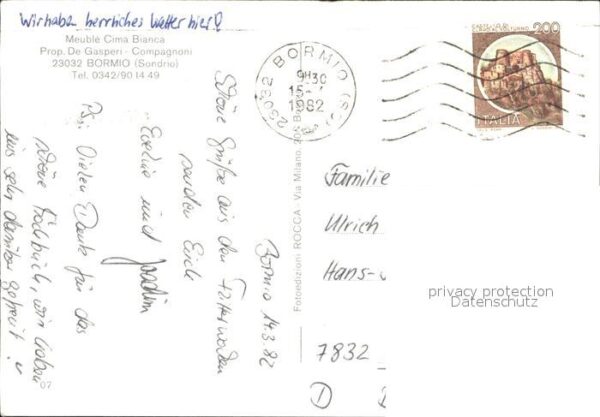 Wir haben herrliches Wetter hier!
Meublé Cima Bianca
Prop. De Gasperi - Compagnoni
23032 BORMIO (Sondrio)
Tel. 0342/90 14 49
Bormio 14.3.82
Schöne Grüße aus den Flitterwochen
senden Euch
Eveline und Joachim
Ps: Vielen Dank für das
schöne Kochbuch, wir haben
uns sehr darüber gefreut!
07
Fotoedizioni ROCCA - Via Milano,
BORMIO (SO)
23032
9H30
15-
1982
200
ITALIA
Familie
Ulrich
Hans-
7832
D
privacy protection
Datenschutz